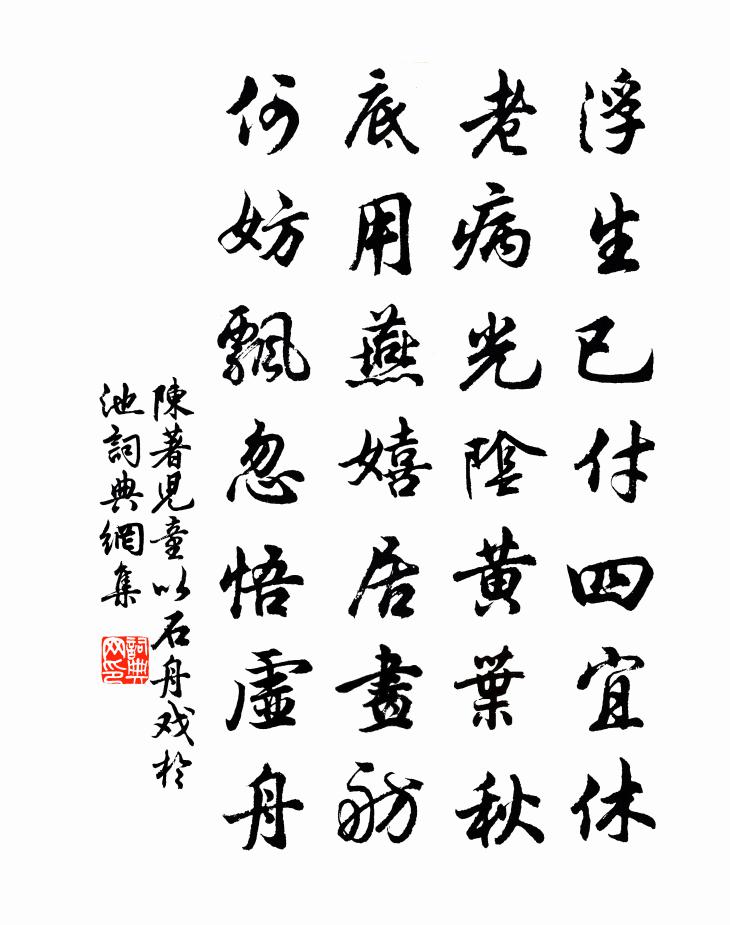 浮生已付四宜休
老病光陰黃葉秋
底用燕嬉居畫舫
何妨飄忽悟虛舟
陳著兒童以石舟戏於
池詞典網集
詞典
网印